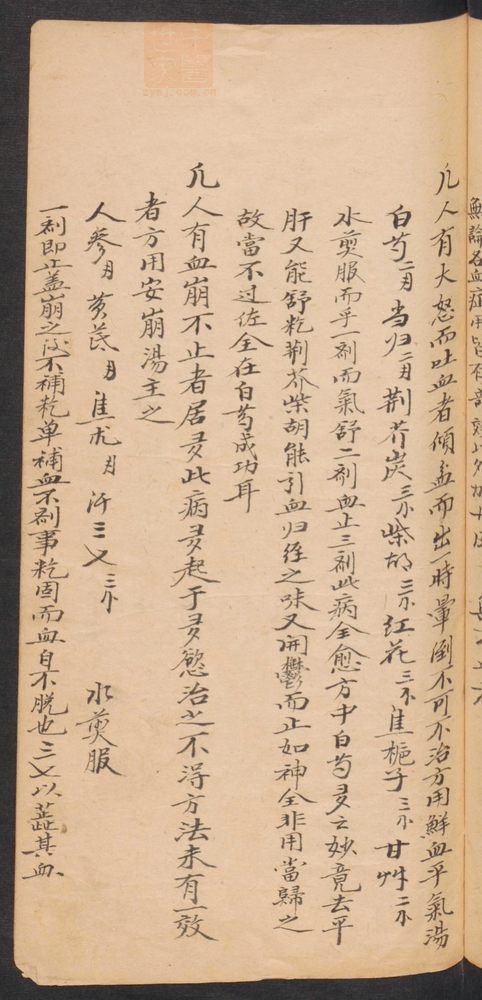 凢人有大怒而吐血者傾盆而出一時暈倒不可不治方用鮮血平氣湯
白芍二月 当归二月 荆芥炭三小 柴胡三小 红花三小 焦栀子三小 甘艸二小
水煎服而乎一剂而氣舒二剂血止三剂此病全愈方中白芍多之妙竟去平
肝又能舒乾荆芥柴胡能引血归经之味又開鬱而止如神全非用當歸之
故當不过佐全在白芍成功耳
凢人有血崩不止者居多此病多起于多慾治之不得方法未有一效
者方用安崩湯主之
人參月 黄芪月 焦朮月 汗三七三小 水煎服
一剂即止盖崩之后不補乾单補血不剂事乾固而血自不脱也三七以蓝其血
zysj.com.cn